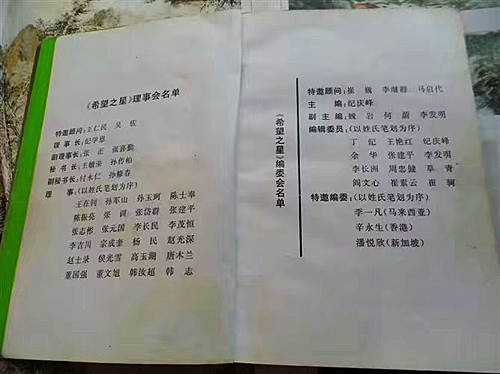 《希望之星》理事会名单
特邀顾问：王仁民 吴 佐
理 事 长：纪学恩
副理事长：张 正 张喜勤
秘 书 长：王敏荣 孙传柏
副秘书长：付木仁 孙修春
理 事：（以姓氏笔划为序）
王在钊 孙军山 孙玉珂 陈士奉
陈振亮 张 训 张岱蔚 张建平
张志彬 张元国 李长民 李茂恒
李吉川 宗成奎 杨 民 赵光深
赵士录 侯光雪 高玉翮 唐木兰
董国强 董文旭 韩汝超 韩 志
《希望之星》编委会名单
特邀顾问：崔 巍 李继群 马启代
主 编：纪庆峰
副 主 编：魏 岩 何 蔚 李发明
编辑委员：（以姓氏笔划为序）
丁 纪 王艳红 纪庆峰
余 华 张建平 李发明
李长洲 周忠健 草 青
阎文心 崔素云 崔 巍
特邀编委：（以姓氏笔划为序）
李一凡（马来西亚）
辛永生（香港）
潘悦欣（新加坡）